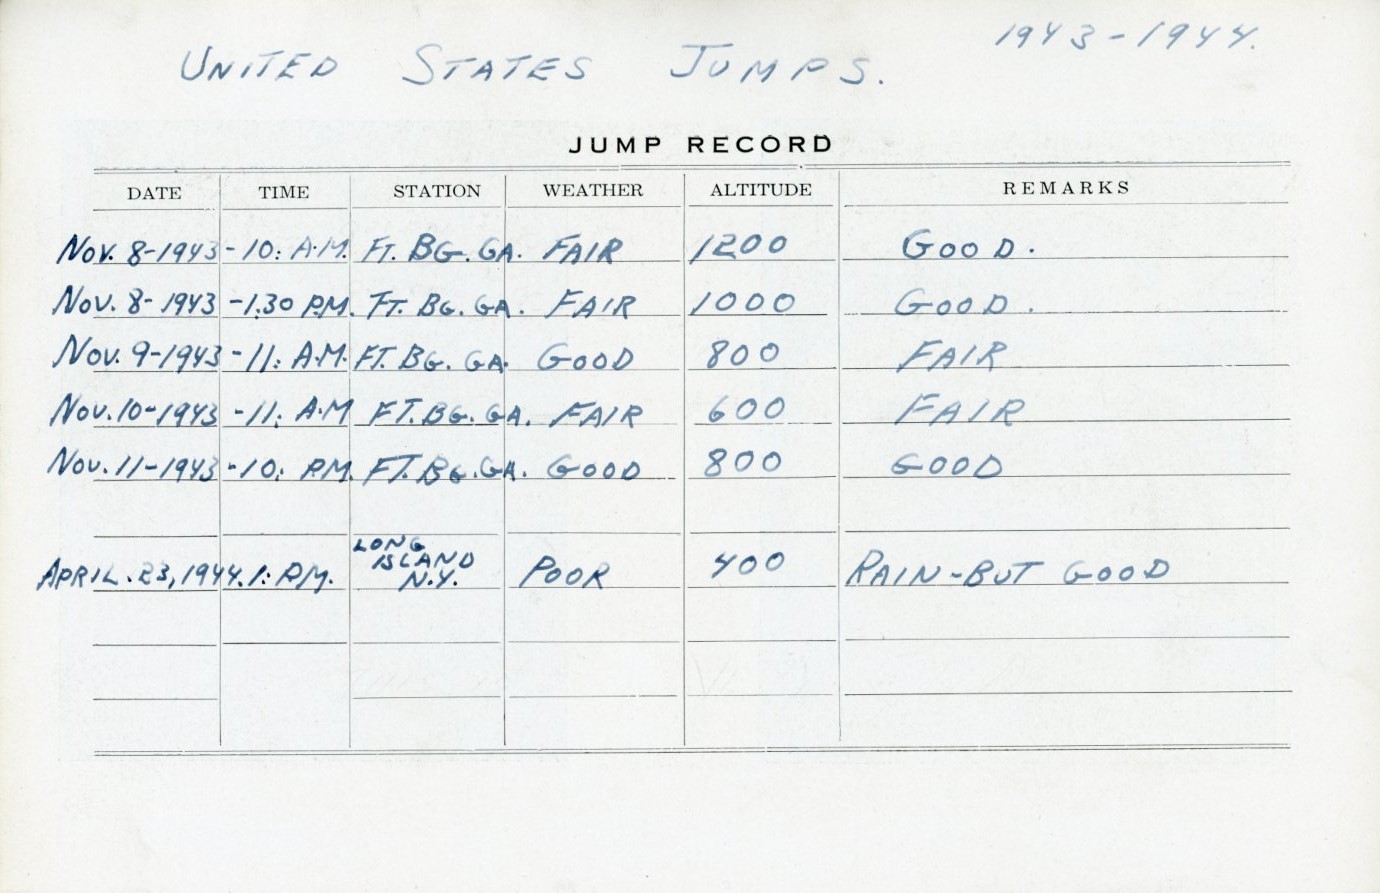 1943-1944.
UNITED STATES JUMPS.
JUMP RECORD
DATE TIME STATION WEATHER ALTITUDE REMARKS
Nov. 8-1943 -10: A.M. FT. BG. GA. FAIR 1200 GOOD.
Nov. 8-1943 -1:30 P.M. FT. BG. GA. FAIR 1000 GOOD.
Nov. 9-1943 -11: A.M. FT. BG. GA. GOOD 800 FAIR
Nov. 10-1943 -11: A.M FT. BG. GA. FAIR 600 FAIR
Nov. 11-1943 -10: P.M. FT. BG. GA. GOOD 800 GOOD
LONG
ISLAND
APRIL. 23, 1944. 1: P.M. N.Y. POOR 400 RAIN-BUT GOOD